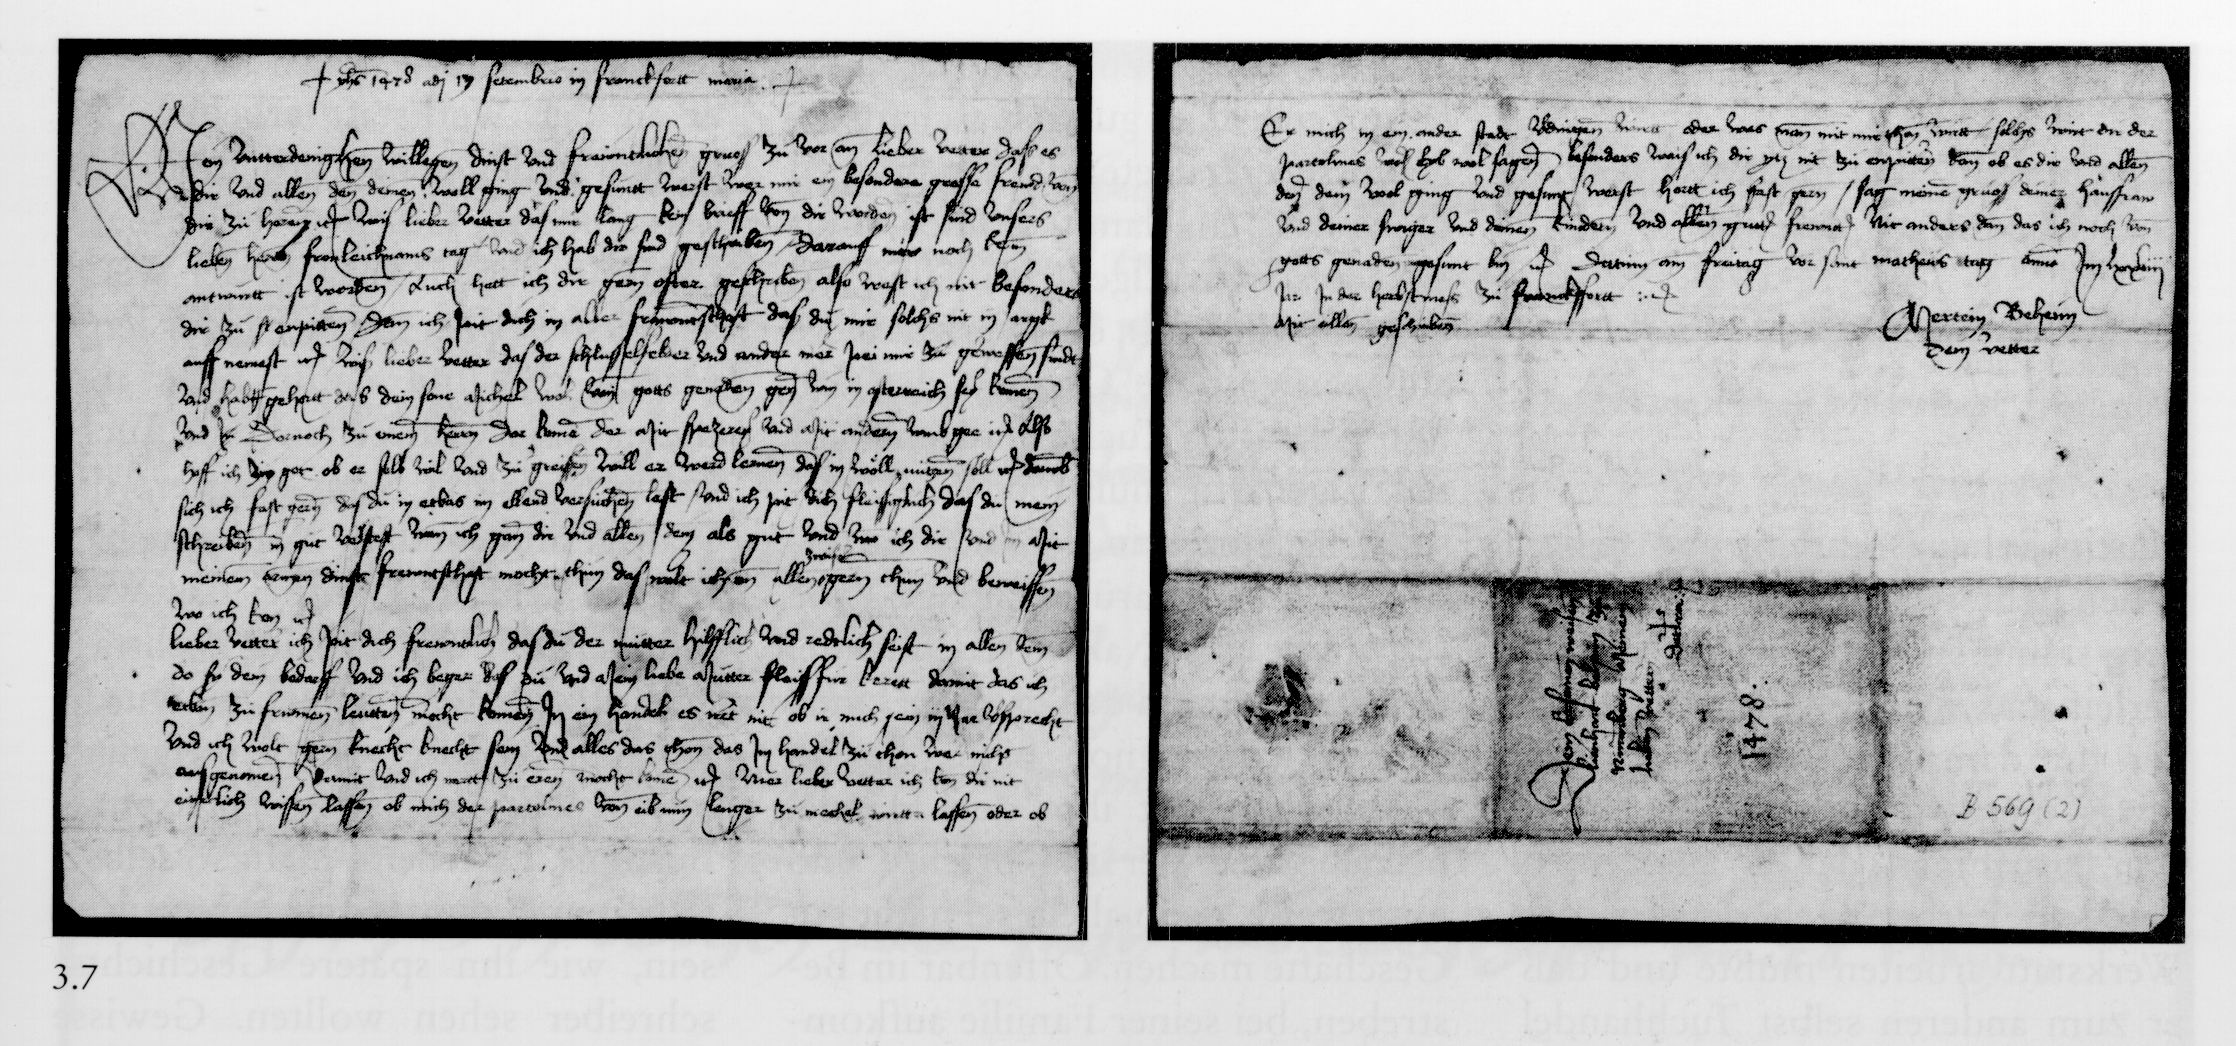 + yhs 1478 adj 17 setembrio in franckfortt maria +
Mein untterdenigken willigen dinst und freuntlichen gruos zu vor an lieber vetter das es
dir und allen den deinen woll ging und gesuntt werst wer mir ein besondere grosse freud von
dir zu horen lieber vetter das mir lang kein brieff von dir worden ist sind unsers
lieben heren fronleichnams tag und ich hab dir sind geschriben darauff mir noch kein
antwurtt ist worden / Auch hett ich dir gern ofter geschriben also west ich nit besonders
dir zu enpitten Dan ich pit dich in aller freuntschaft das du mir solchs nit in argk
auff nemest wis lieber vetter das der schlusselfelder und ander mer pei mir zu gewessen sindt
und habtt gehortt das dein sone Michel wol von gotts genaden gen in osterreich sey komen
und Dornoch zu einem herrn Der kome der Mit speczerey und Mit andern umb gee Also
hoff ich zu got ob er selb wil und zu greiffen will er werd lernen das in woll nutzen soll
sich ich fast gern das du in etwas im ellend versuchen last und ich pit dich fleissiglich das du mein
schreiben in gut verstest wan ich gan dir und allen dein als gut und wo ich dir und in Mit
meinem dinst freuntschaft mocht thun das wolt ich on allen zweifel gern thun und beweissen
wo ich kon
lieber vetter ich pit dich freuntlich das du der mutter hilfflich und redtlich seist in allen dem
do sy dein bedarff und ich beger das du und Mein liebe Mutter fleiss fur kerett domit das ich
etwen zu frumen leutten mocht komen In ein handel es wer nit ob ir mich jein iij Jar versprecht
und ich wolt gern knecht knecht sein und alles das thon das Im handel zu thon wer nichs
ausgenomen Domit und ich zu eren mocht komen Mer lieber vetter ich kon dir nit
eigentlich wissen lassen ob mich der partolmes von eib nun lenger zu mechel lassen oder ob
Er mich in ein ander stadt verdingen wirtt oder was man mit mir thon wirtt solchs wirt dir der
partolmes wol sagen besonders weis ich dir ytz nit zu enpitten dan ob es dir und allen
den dein wol ging und gesunt werst hortt ich fast gern / sag meinen gruos deiner hausfraw
und deiner swiger und deinen kindern und allen gutten freunten Nit anders dan das ich noch von
gotts genaden gesunt bin Dattum am freitag vor sant matheus tag anno Im lxxviij
Jar In der herbstmess zu franckffortt
Mit eillen geschriben
Mertein Beheim
Dein vetter
Dem Ersamen weisen
lienhart beheim zu
Nurmberg Meinem
lieben vettern
Dattum
1478.
B 569 (2)
3.7